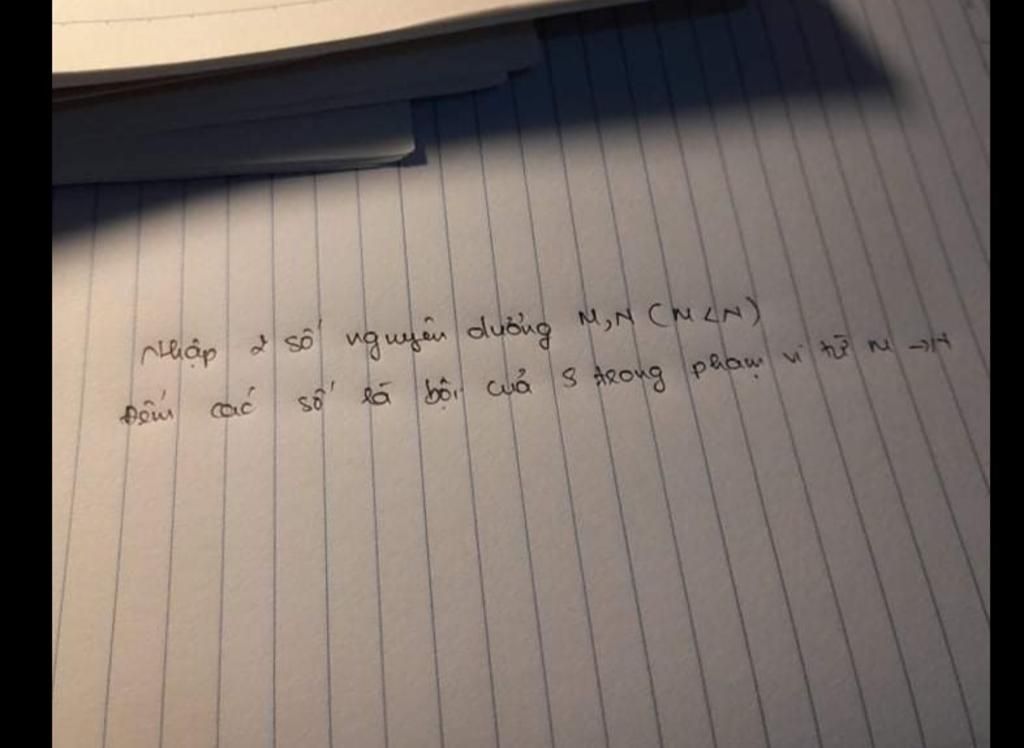 Nhập 2 số nguyên dương M,N (M<N)
Đếm các số là bội của 3 trong phạm vi từ M → N